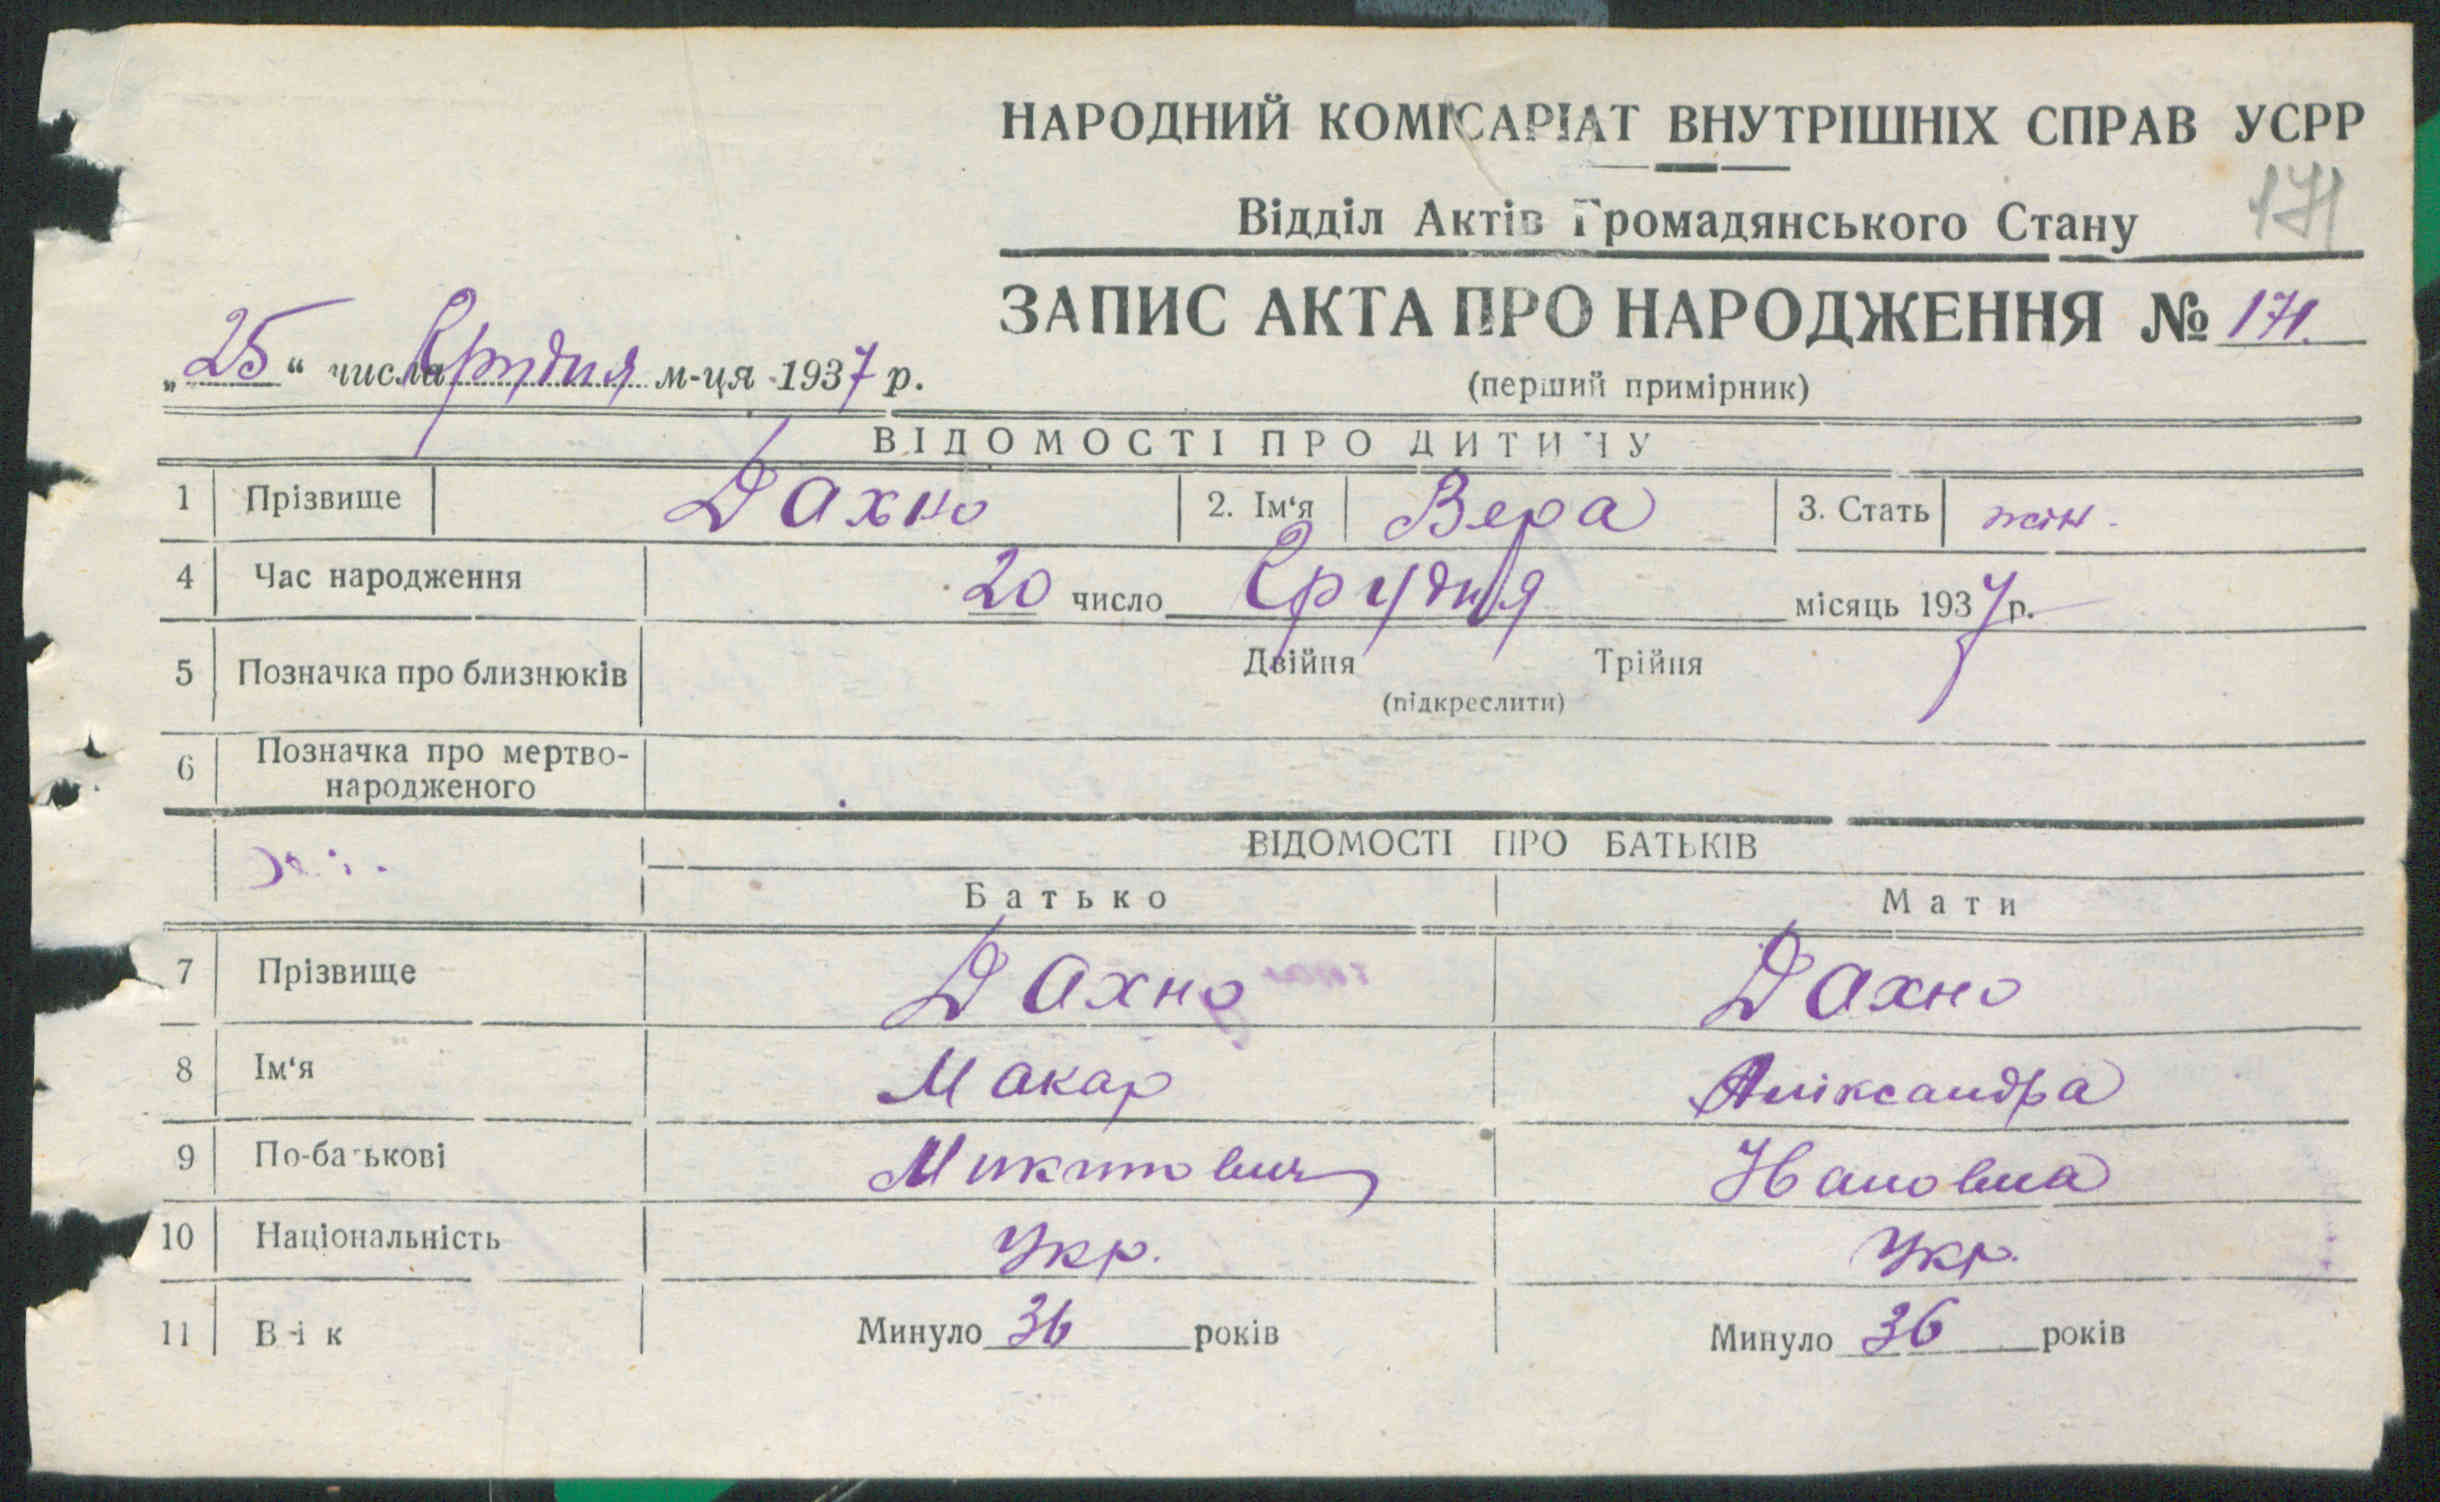 НАРОДНИЙ КОМІСАРІАТ ВНУТРІШНІХ СПРАВ УСРР
Відділ Актів Громадянського Стану
171
ЗАПИС АКТА ПРО НАРОДЖЕННЯ № 171.
„25“ числа Грудня м-ця 1937 р.
(перший примірник)
ВІДОМОСТІ ПРО ДИТИНУ
1 Прізвище Дахно 2. Ім'я Вера 3. Стать жін.
4 Час народження 20 число Грудня місяць 1937 р.
5 Позначка про близнюків Двійня Трійня
(підкреслити)
6 Позначка про мертво-
народженого
ВІДОМОСТІ ПРО БАТЬКІВ
Батько Мати
7 Прізвище Дахно Дахно
8 Ім'я Макар Аліксандра
9 По-батькові Микитович Івановна
10 Національність Укр. Укр.
11 Вік Минуло 36 років Минуло 36 років